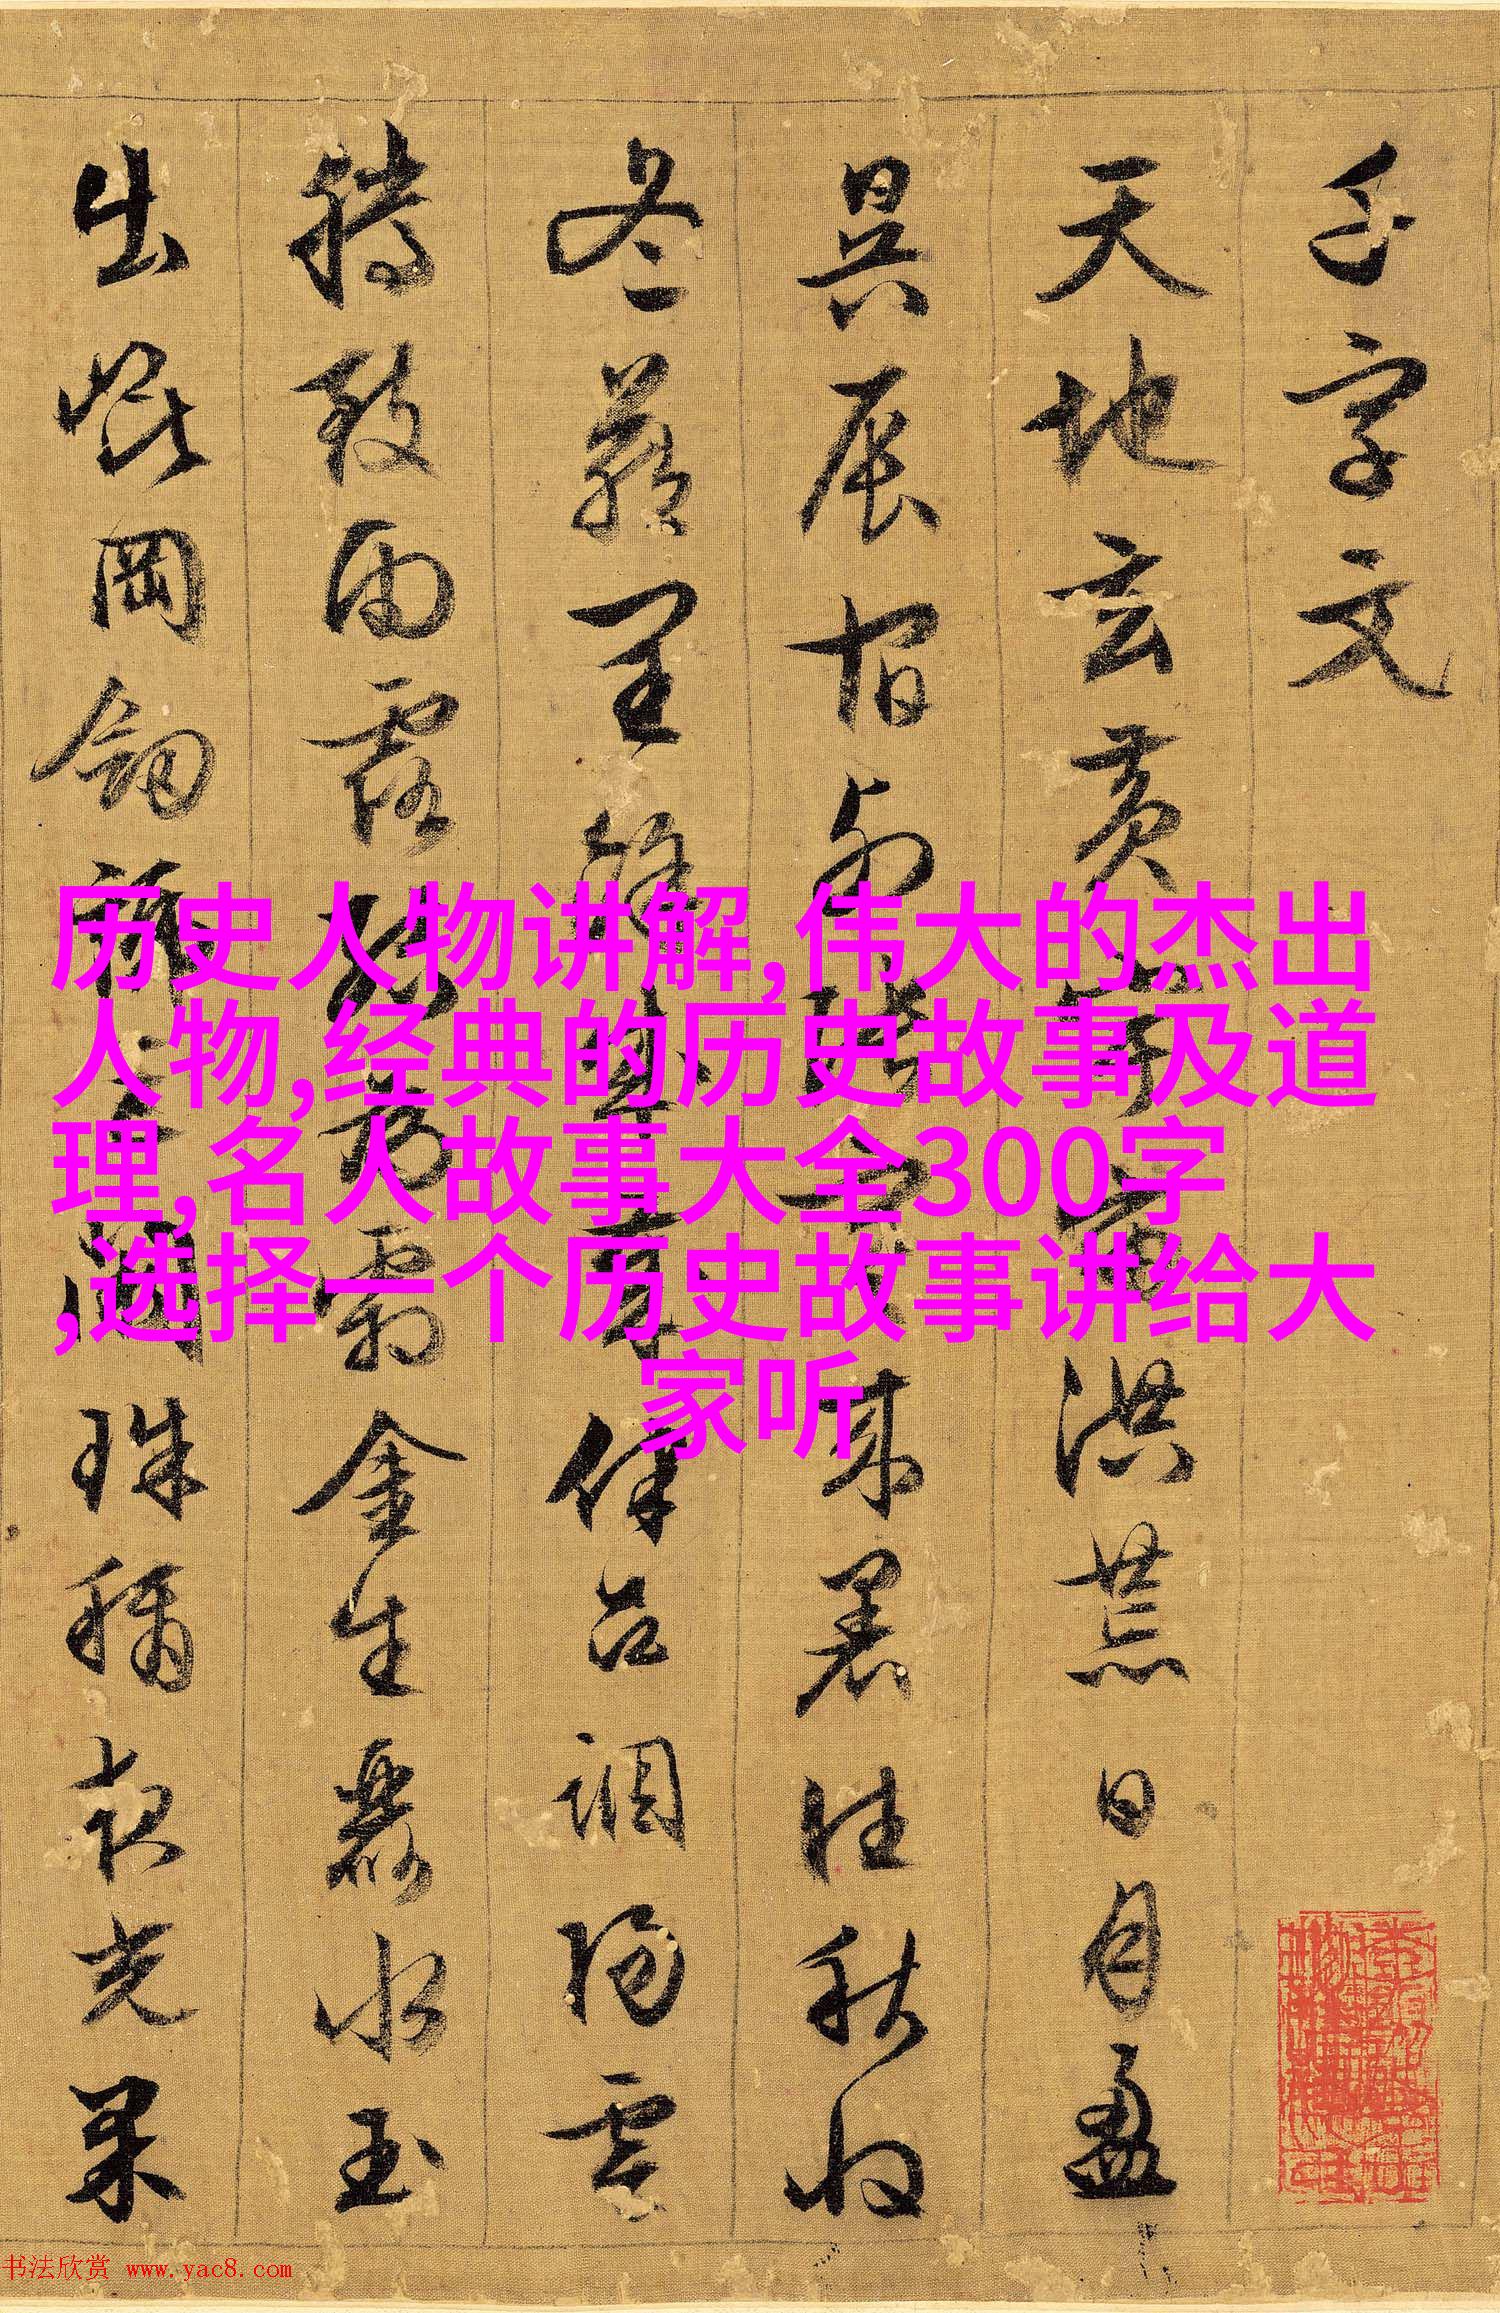 千字文
天地玄黄宇宙洪荒日月盈
昃辰宿列張寒来暑往秋收
冬藏閏餘成歲律吕調陽雲
騰致雨露結為霜金生麗水玉
出崐岡劒號巨闕珠稱夜光果
历史人物讲解,伟大的杰出
人物,经典的历史故事及道
理,名人故事大全300字
,选择一个历史故事讲给大
家听
书法欣赏 www.yac8.com